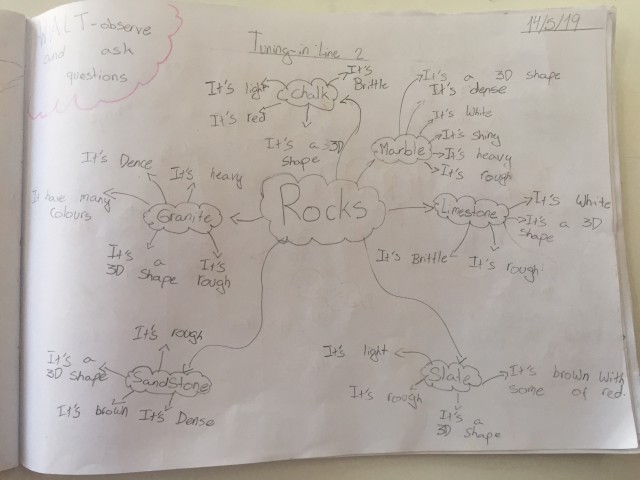 WALT-observe
and ask
questions
14/5/19
Tuning-in line 2
Chalk
It's
Brittle
It's light
It's red
It's a 3D
shape
Marble
It's a 3D shape
It's dense
It's White
It's shiny
It's heavy
It's rough
Rocks
Granite
It's Dence
It's heavy
It have many
colours
It's a
3D shape
It's
rough
Limestone
It's White
It's a 3D
shape
It's Brittle
It's rough
SandStone
It's rough
It's a
3D shape
It's brown
It's Dense
Slate
It's light
It's rough
It's a
3D shape
It's brown With
some of red.